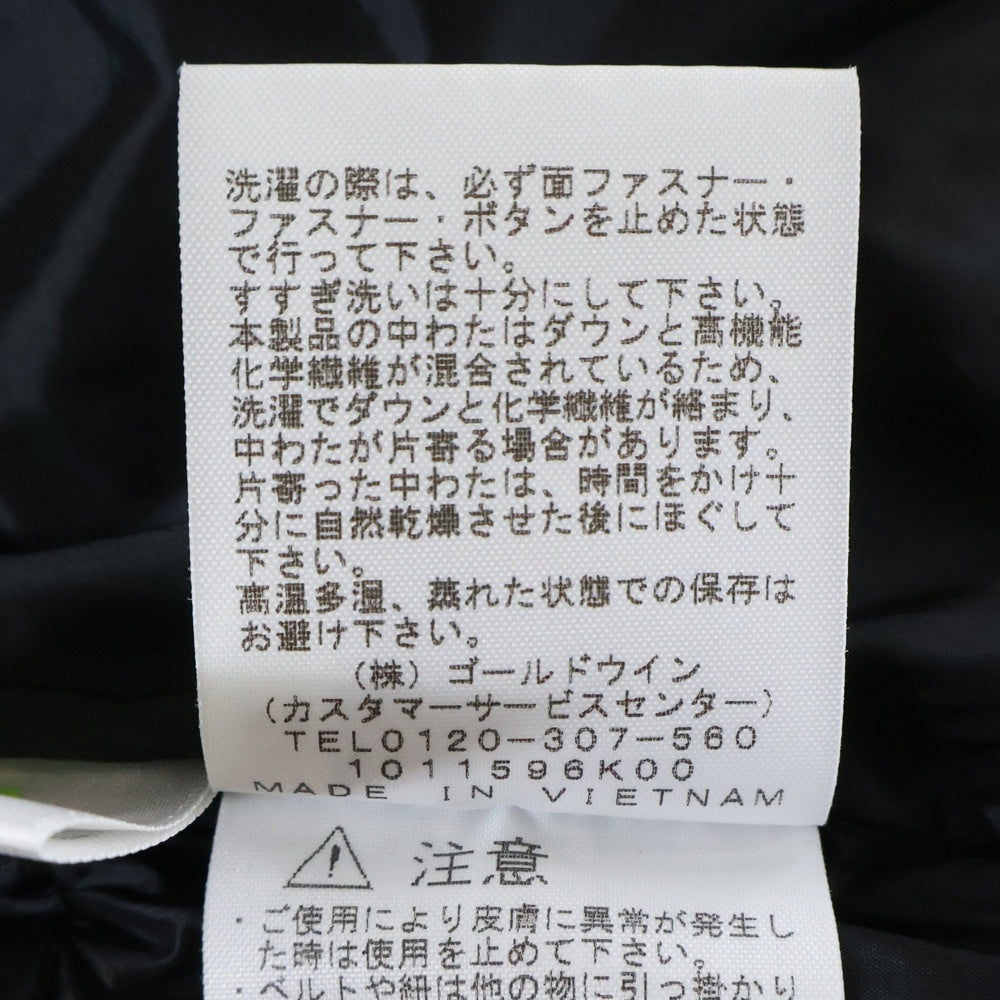 洗濯の際は、必ず面ファスナー・
ファスナー・ボタンを止めた状態
で行って下さい。
すすぎ洗いは十分にして下さい。
本製品の中わたはダウンと高機能
化学繊維が混合されているため、
洗濯でダウンと化学繊維が絡まり、
中わたが片寄る場合があります。
片寄った中わたは、時間をかけ十
分に自然乾燥させた後にほぐして
下さい。
高温多湿、蒸れた状態での保存は
お避け下さい。
(株)ゴールドウイン
(カスタマーサービスセンター)
TEL0120-307-560
1011596K00
MADE IN VIETNAM
⚠ 注意
・ご使用により皮膚に異常が発生し
た時は使用を止めて下さい。
・ベルトや紐は他の物に引っ掛かり